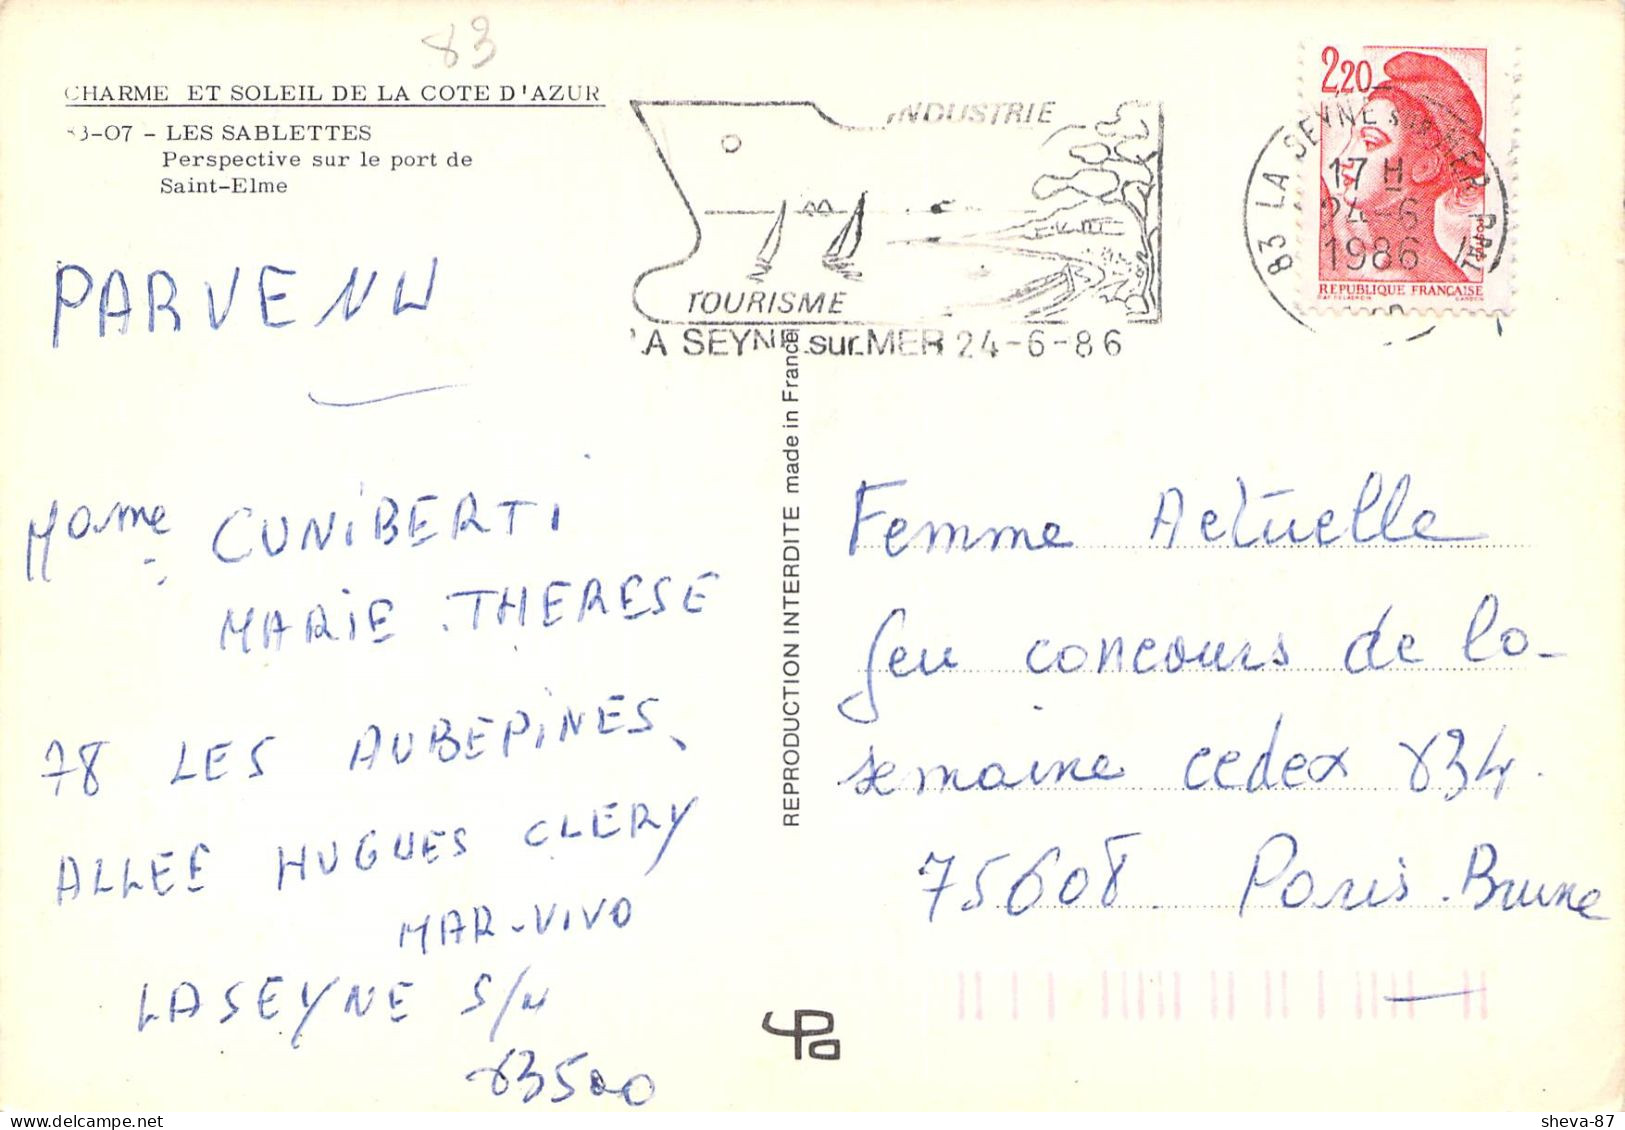 83
CHARME ET SOLEIL DE LA COTE D'AZUR
83-07 - LES SABLETTES
Perspective sur le port de
Saint-Elme
INDUSTRIE
TOURISME
LA SEYNE sur MER 24-6-86
83 LA SEYNE SUR MER PPAL
17 H
24-6
1986
2,20
POSTES
REPUBLIQUE FRANÇAISE
PARVENU
Mame CUNIBERTI
MARIE.THERESE
78 LES AUBEPINES
ALLEE HUGUES CLERY
MAR-VIVO
LASEYNE S/M
83500
REPRODUCTION INTERDITE made in France
Femme Actuelle
Jeu concours de la
semaine cedex 834.
75608. Paris.Brune
sheva-87